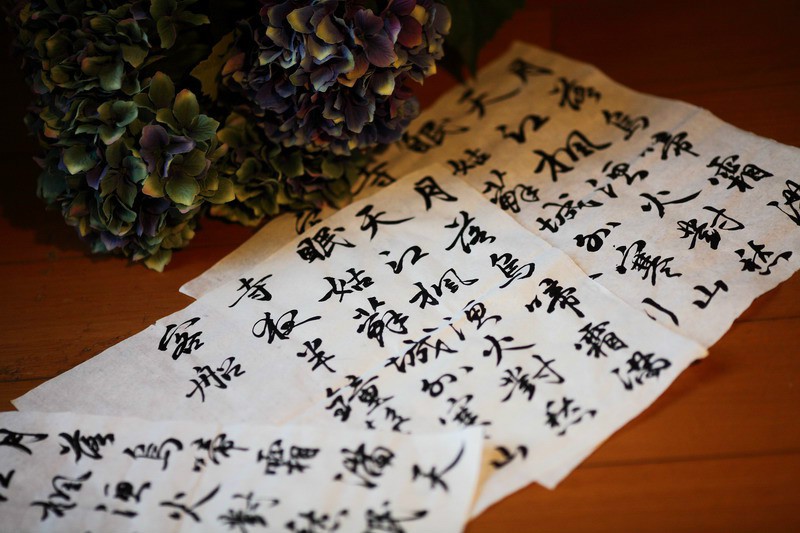 月落烏啼霜滿
天江楓漁火對愁
眠姑蘇城外寒山
寺
客
月落烏啼霜滿
天江楓漁火對愁
眠姑蘇城外寒山
寺夜半鐘聲
客船
月落烏啼霜滿天
江楓漁火對愁眠